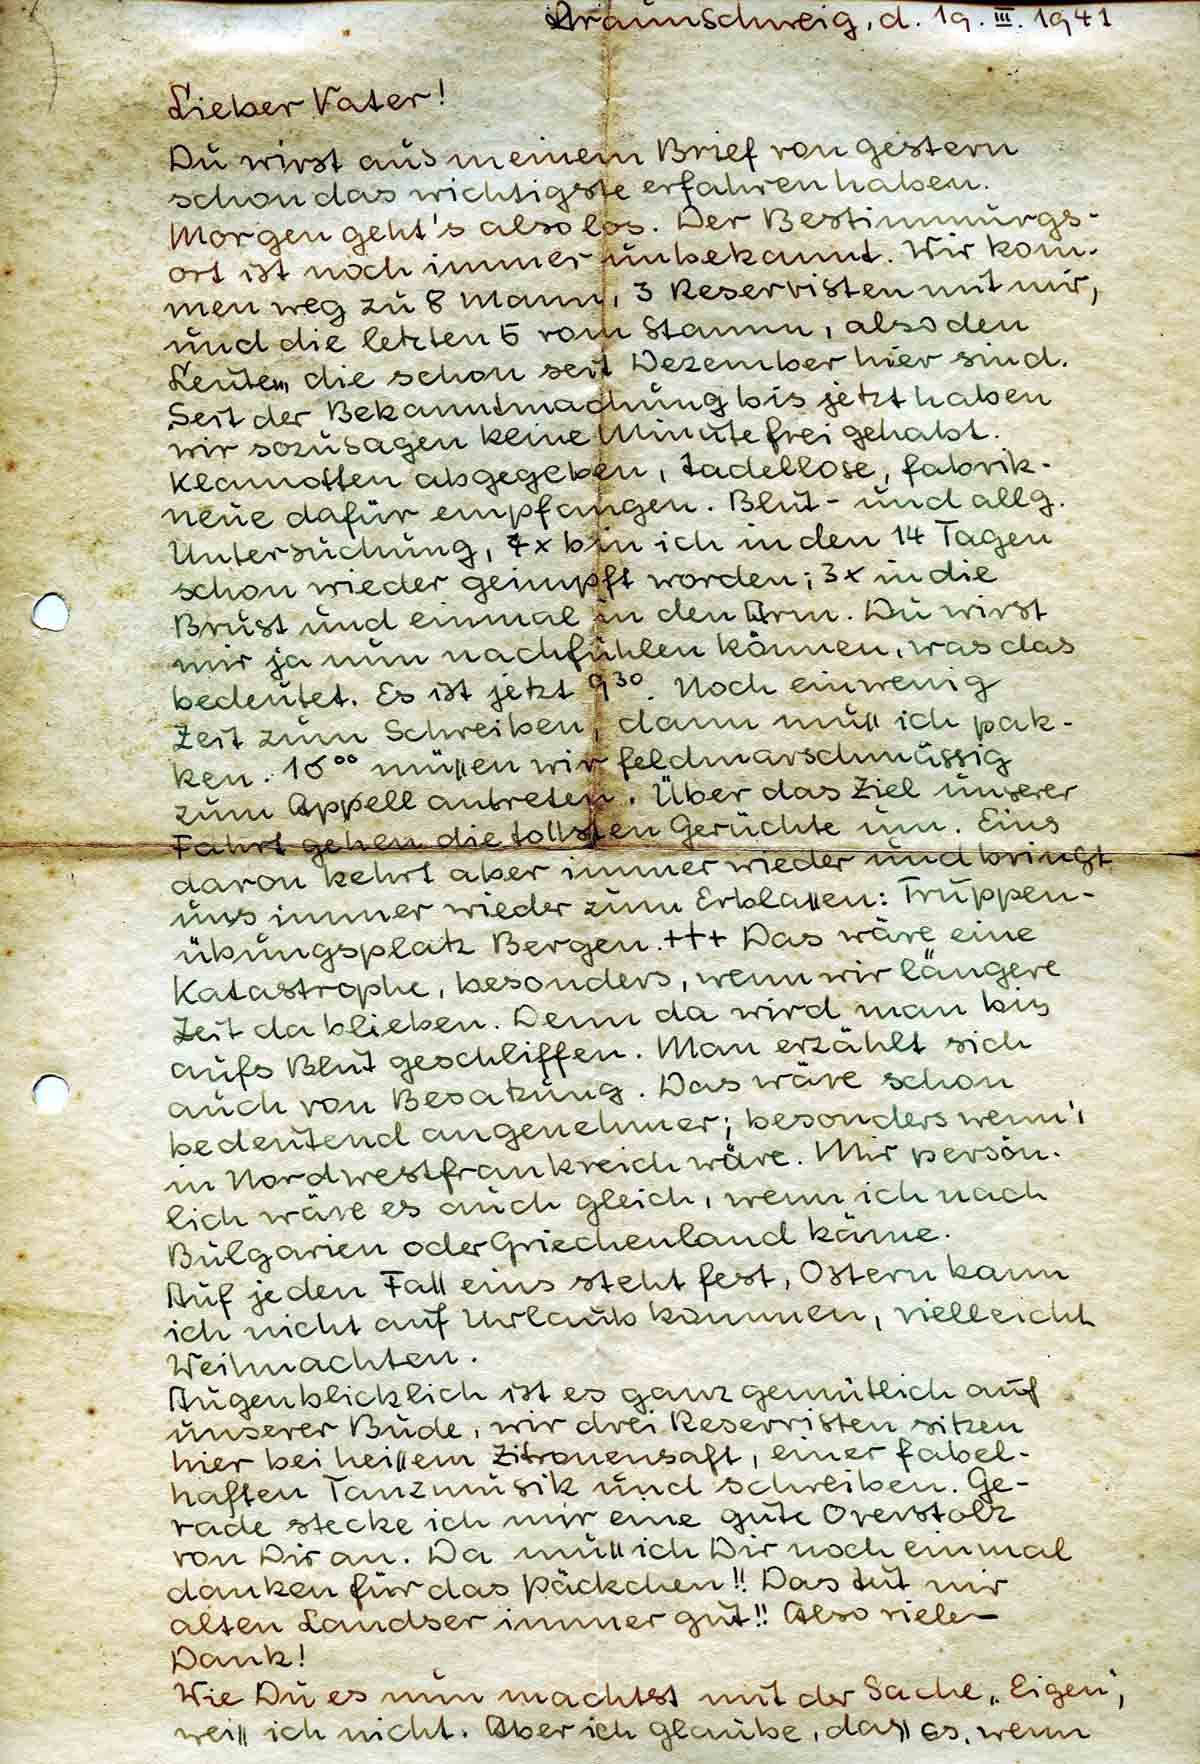 Braunschweig, d. 19. III. 1941
Lieber Vater!
Du wirst aus meinem Brief von gestern
schon das wichtigste erfahren haben.
Morgen geht's also los. Der Bestimmungs-
ort ist noch immer unbekannt. Wir kom-
men weg zu 8 Mann, 3 Reservisten mit mir,
und die letzten 5 vom Stamm, also den
Leuten, die schon seit Dezember hier sind.
Seit der Bekanntmachung bis jetzt haben
wir sozusagen keine Minute frei gehabt.
Klamotten abgegeben, tadellose, fabrik-
neue dafür empfangen. Blut- und allg.
Untersuchung, 4x bin ich in den 14 Tagen
schon wieder geimpft worden; 3x in die
Brust und einmal in den Arm. Du wirst
mir ja nun nachfühlen können, was das
bedeutet. Es ist jetzt 9³⁰. Noch ein wenig
Zeit zum Schreiben, dann muß ich pak-
ken. 16⁰⁰ müßen wir feldmarschmässig
zum Appell antreten. Über das Ziel unserer
Fahrt gehen die tollsten Gerüchte um. Eins
davon kehrt aber immer wieder und bringt
uns immer wieder zum Erblaßen: Truppen-
übungsplatz Bergen.+++ Das wäre eine
Katastrophe, besonders, wenn wir längere
Zeit da blieben. Denn da wird man bis
aufs Blut geschliffen. Man erzählt sich
auch von Besatzung. Das wäre schon
bedeutend angenehmer; besonders wenn's
in Nordwestfrankreich wäre. Mir persön-
lich wäre es auch gleich, wenn ich nach
Bulgarien oder Griechenland käme.
Auf jeden Fall eins steht fest, Ostern kann
ich nicht auf Urlaub kommen, vielleicht
Weihnachten.
Augenblicklich ist es ganz gemütlich auf
unserer Bude, wir drei Reservisten sitzen
hier bei heißem Zitronensaft, einer fabel-
haften Tanzmusik und schreiben. Ge-
rade stecke ich mir eine gute Overstolz
von Dir an. Da muß ich Dir noch einmal
danken für das Päckchen!! Das tut mir
alten Landser immer gut!! Also vielen
Dank!
Wie Du es nun machtst mit der Sache „Eigen",
weiß ich nicht. Aber ich glaube, daß es, wenn